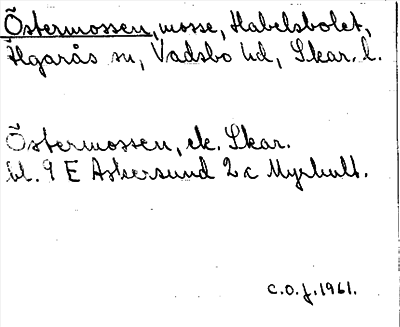 Östermossen, mosse, Habelsbolet,
Älgarås sn, Vadsbo hd, Skar. l.
Östermossen, ek. Skar.
bl. 9 E Askersund 2c Myrhult.
C.O.J. 1961.